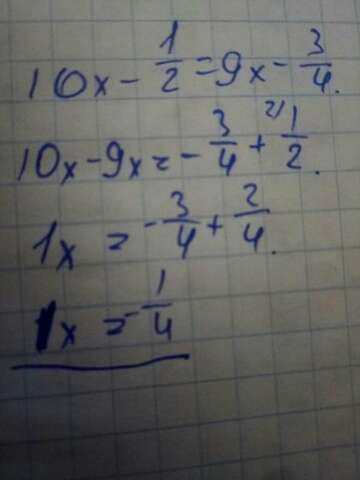 10x - 1/2 = 9x - 3/4.
10x - 9x = - 3/4 + 2) 1/2.
1x = - 3/4 + 2/4.
1x = - 1/4